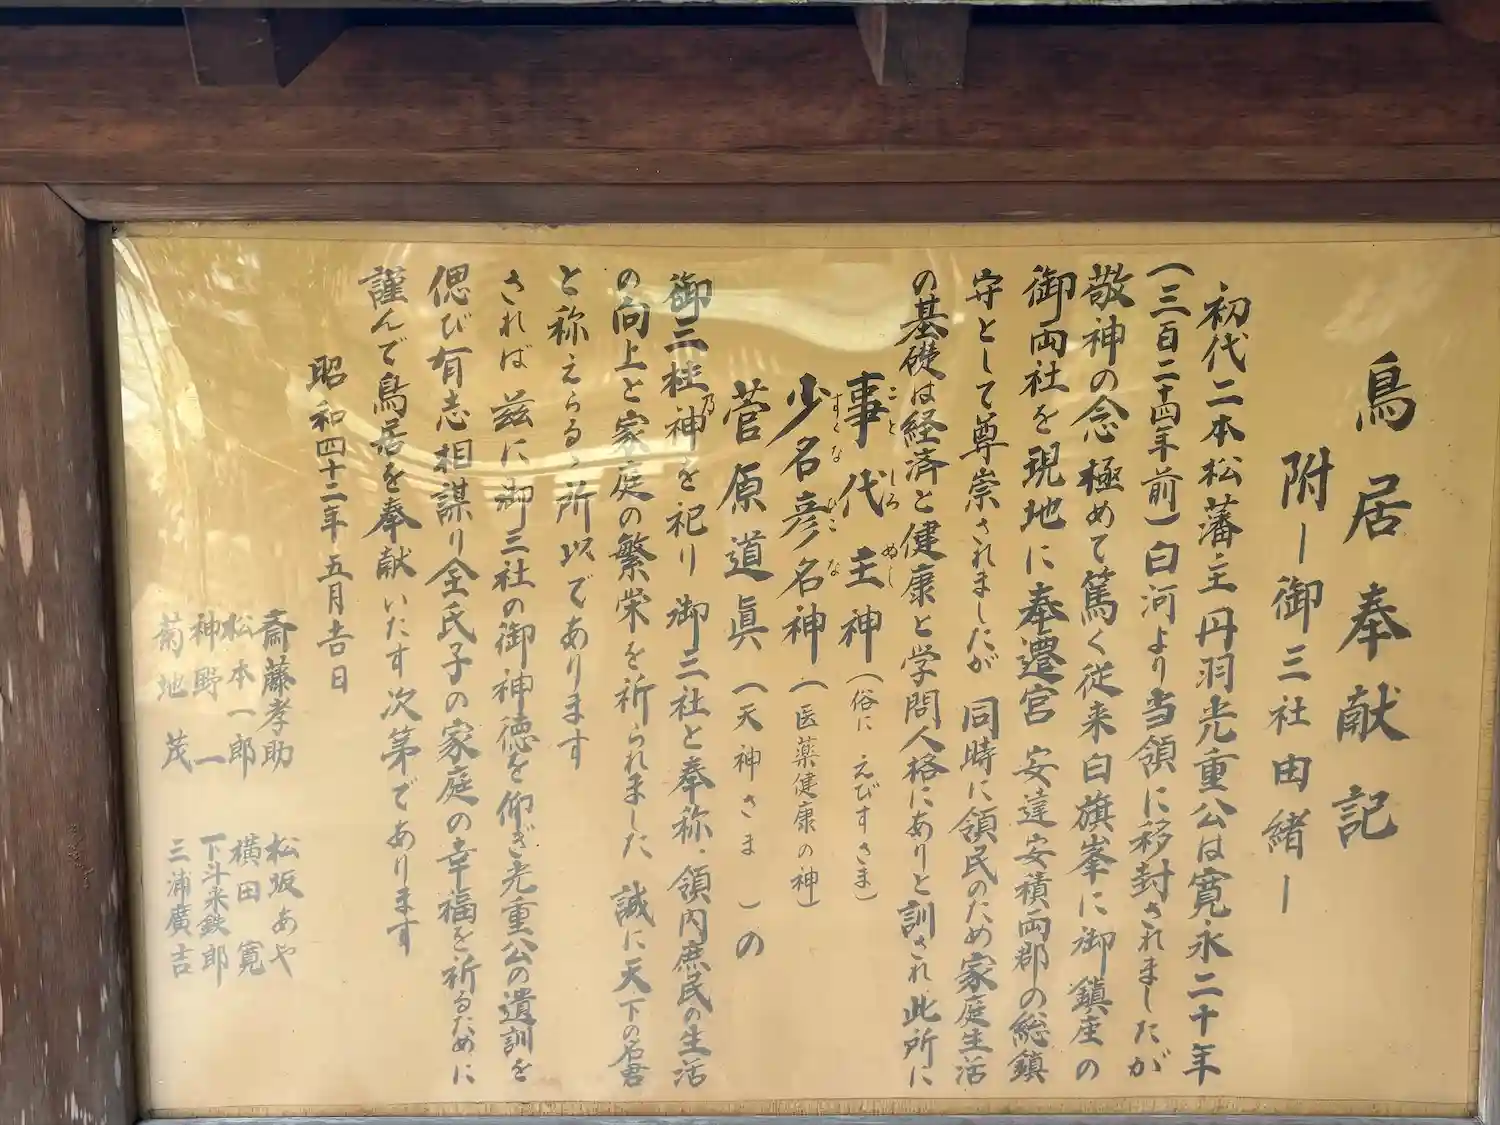 鳥居奉献記
附ー御三社由緒ー
初代二本松藩主丹羽光重公は寛永二十年
(三百二十四年前)白河より当領に移封されましたが
敬神の念極めて篤く従来白旗峯に御鎮座の
御両社を現地に奉遷宮 安達安積両郡の総鎮
守として尊崇されましたが 同時に領民のため家庭生活
の基礎は経済と健康と学問人格にありと訓され此所に
事代主神(俗に えびすさま)
こと しろ めし
少名彦名神(医薬健康の神)
すくな ひこ な
菅原道眞(天神さま)の
御三柱乃神を祀り御三社と奉称、領内庶民の生活
の向上と家庭の繁栄を祈られました 誠に天下の名君
と称えらるゝ所以であります
されば茲に御三社の御神徳を仰ぎ光重公の遺訓を
偲び有志相謀り全氏子の家庭の幸福を祈るために
謹んで鳥居を奉献いたす次第であります
昭和四十二年五月吉日
斎藤孝助 松坂あや
松本一郎 横田 寛
神野 一 下斗米鉄郎
菊地 茂 三浦廣吉